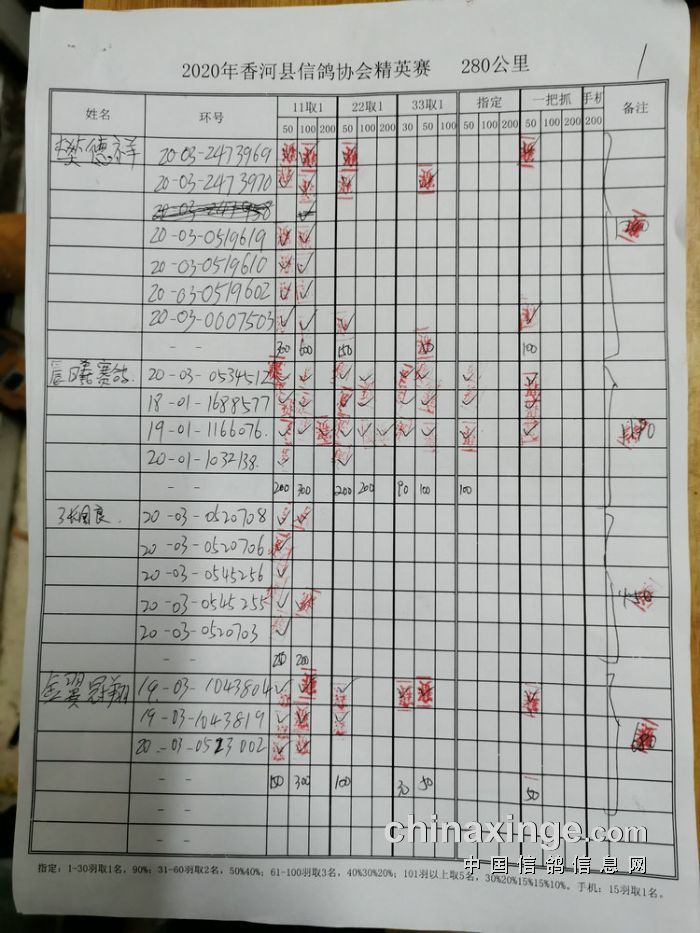 1
2020年香河县信鸽协会精英赛 280公里
姓名 环号 11取1 22取1 33取1 指定 一把抓 手机 备注
50 100 200 50 100 200 30 50 100 50 100 200 50 100 200 200
樊德祥 20-03-2473969
20-03-2473970
20-03-0519619
20-03-0519610
20-03-0519602
20-03-0007503
- - 300 600 150 100
20-03-0534512
18-01-1688577
19-01-1166076.
20-01-1032138.
- - 200 300 200 200 90 100 100
张国良. 20-03-0520708
20-03-0520706
20-03-0545256
20-03-0545255
20-03-0520703
- - 250 200
金翼冠翔 19-03-1043804
19-03-1043819
20-03-0523002
- - 150 300 100 30 50 50
- -
- -
指定：1-30羽取1名，90%；31-60羽取2名，50%40%；61-100羽取3名，40%30%20%；101羽以上取5名，30%20%15%15%10%。手机：15羽取1名。
chinaxinge.com
中国信鸽信息网